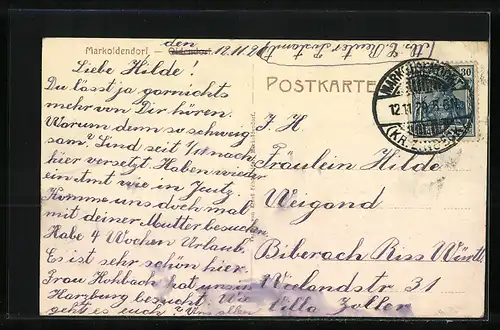 Markoldendorf – Oldendorf.
den 12.11.20
Liebe Hilde!
Du lässt ja garnichts
mehr von Dir hören.
Warum denn so schweig
sam? Sind seit 1. nach
hier versetzt. Haben wieder
ein Amt wie in
Komme uns doch mal
mit deiner Mutter besuchen
Habe 4 Wochen Urlaub.
Es ist sehr schön hier.
Frau Hohbach hat uns in
Harzburg besucht. Wie
geht es euch? Uns allen
POSTKARTE
MARKOLDENDORF
12.11.20
(KR. EINBECK)
30
I. H.
Fräulein Hilde
Weigand
Biberach Riss Württ.
Wielandstr 31
Villa Zoller